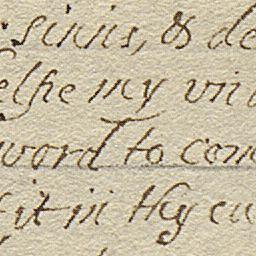 sinns, & de
elfe my vn
word to com
fit in thy eu